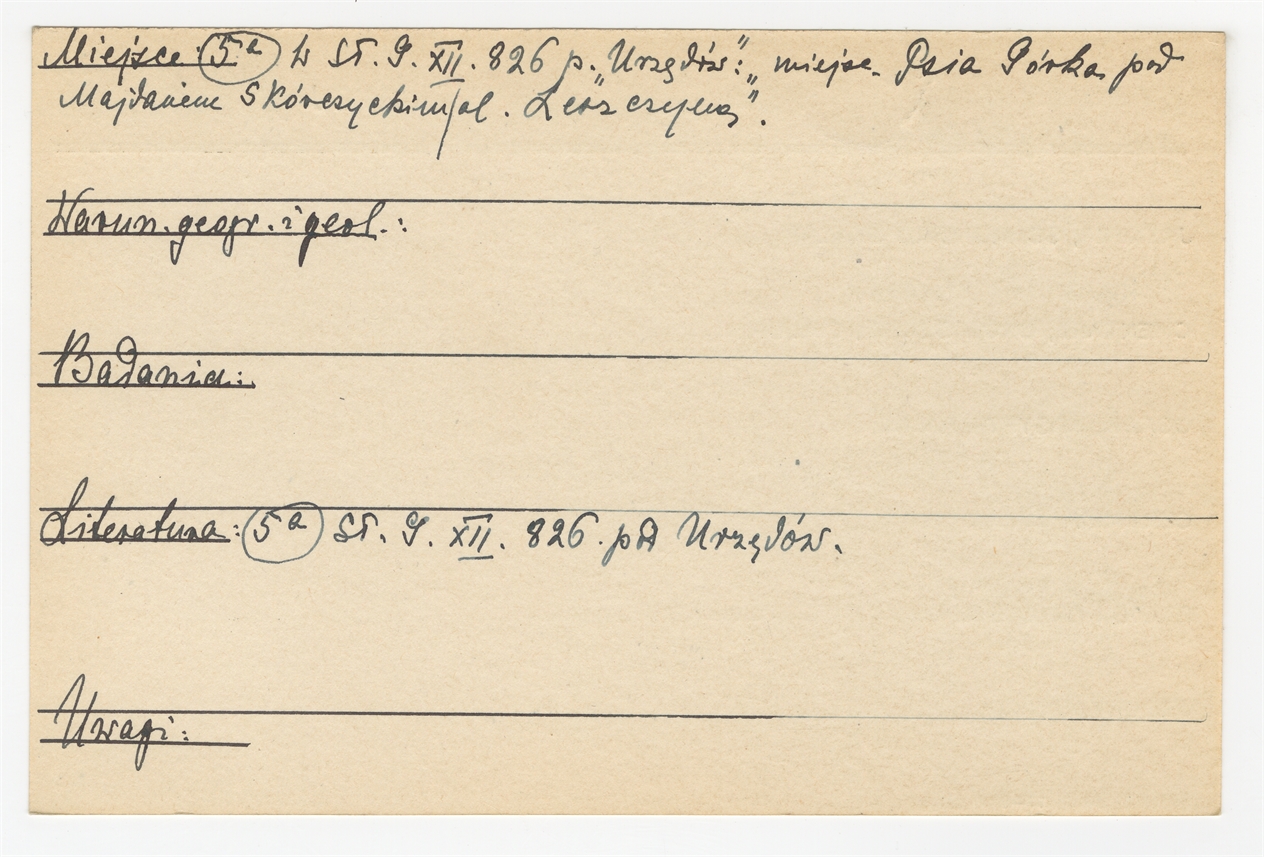 Miejsce: 5a W Sł. G. XII. 826 p. „Urzędów": „miejsc. Psia Górka pod
Majdanem Skórczyckim/al. Leszczyną".
Warun. geogr. i geol.:
Badania:
Literatura: 5a Sł. G. XII. 826 pod Urzędów.
Uwagi: